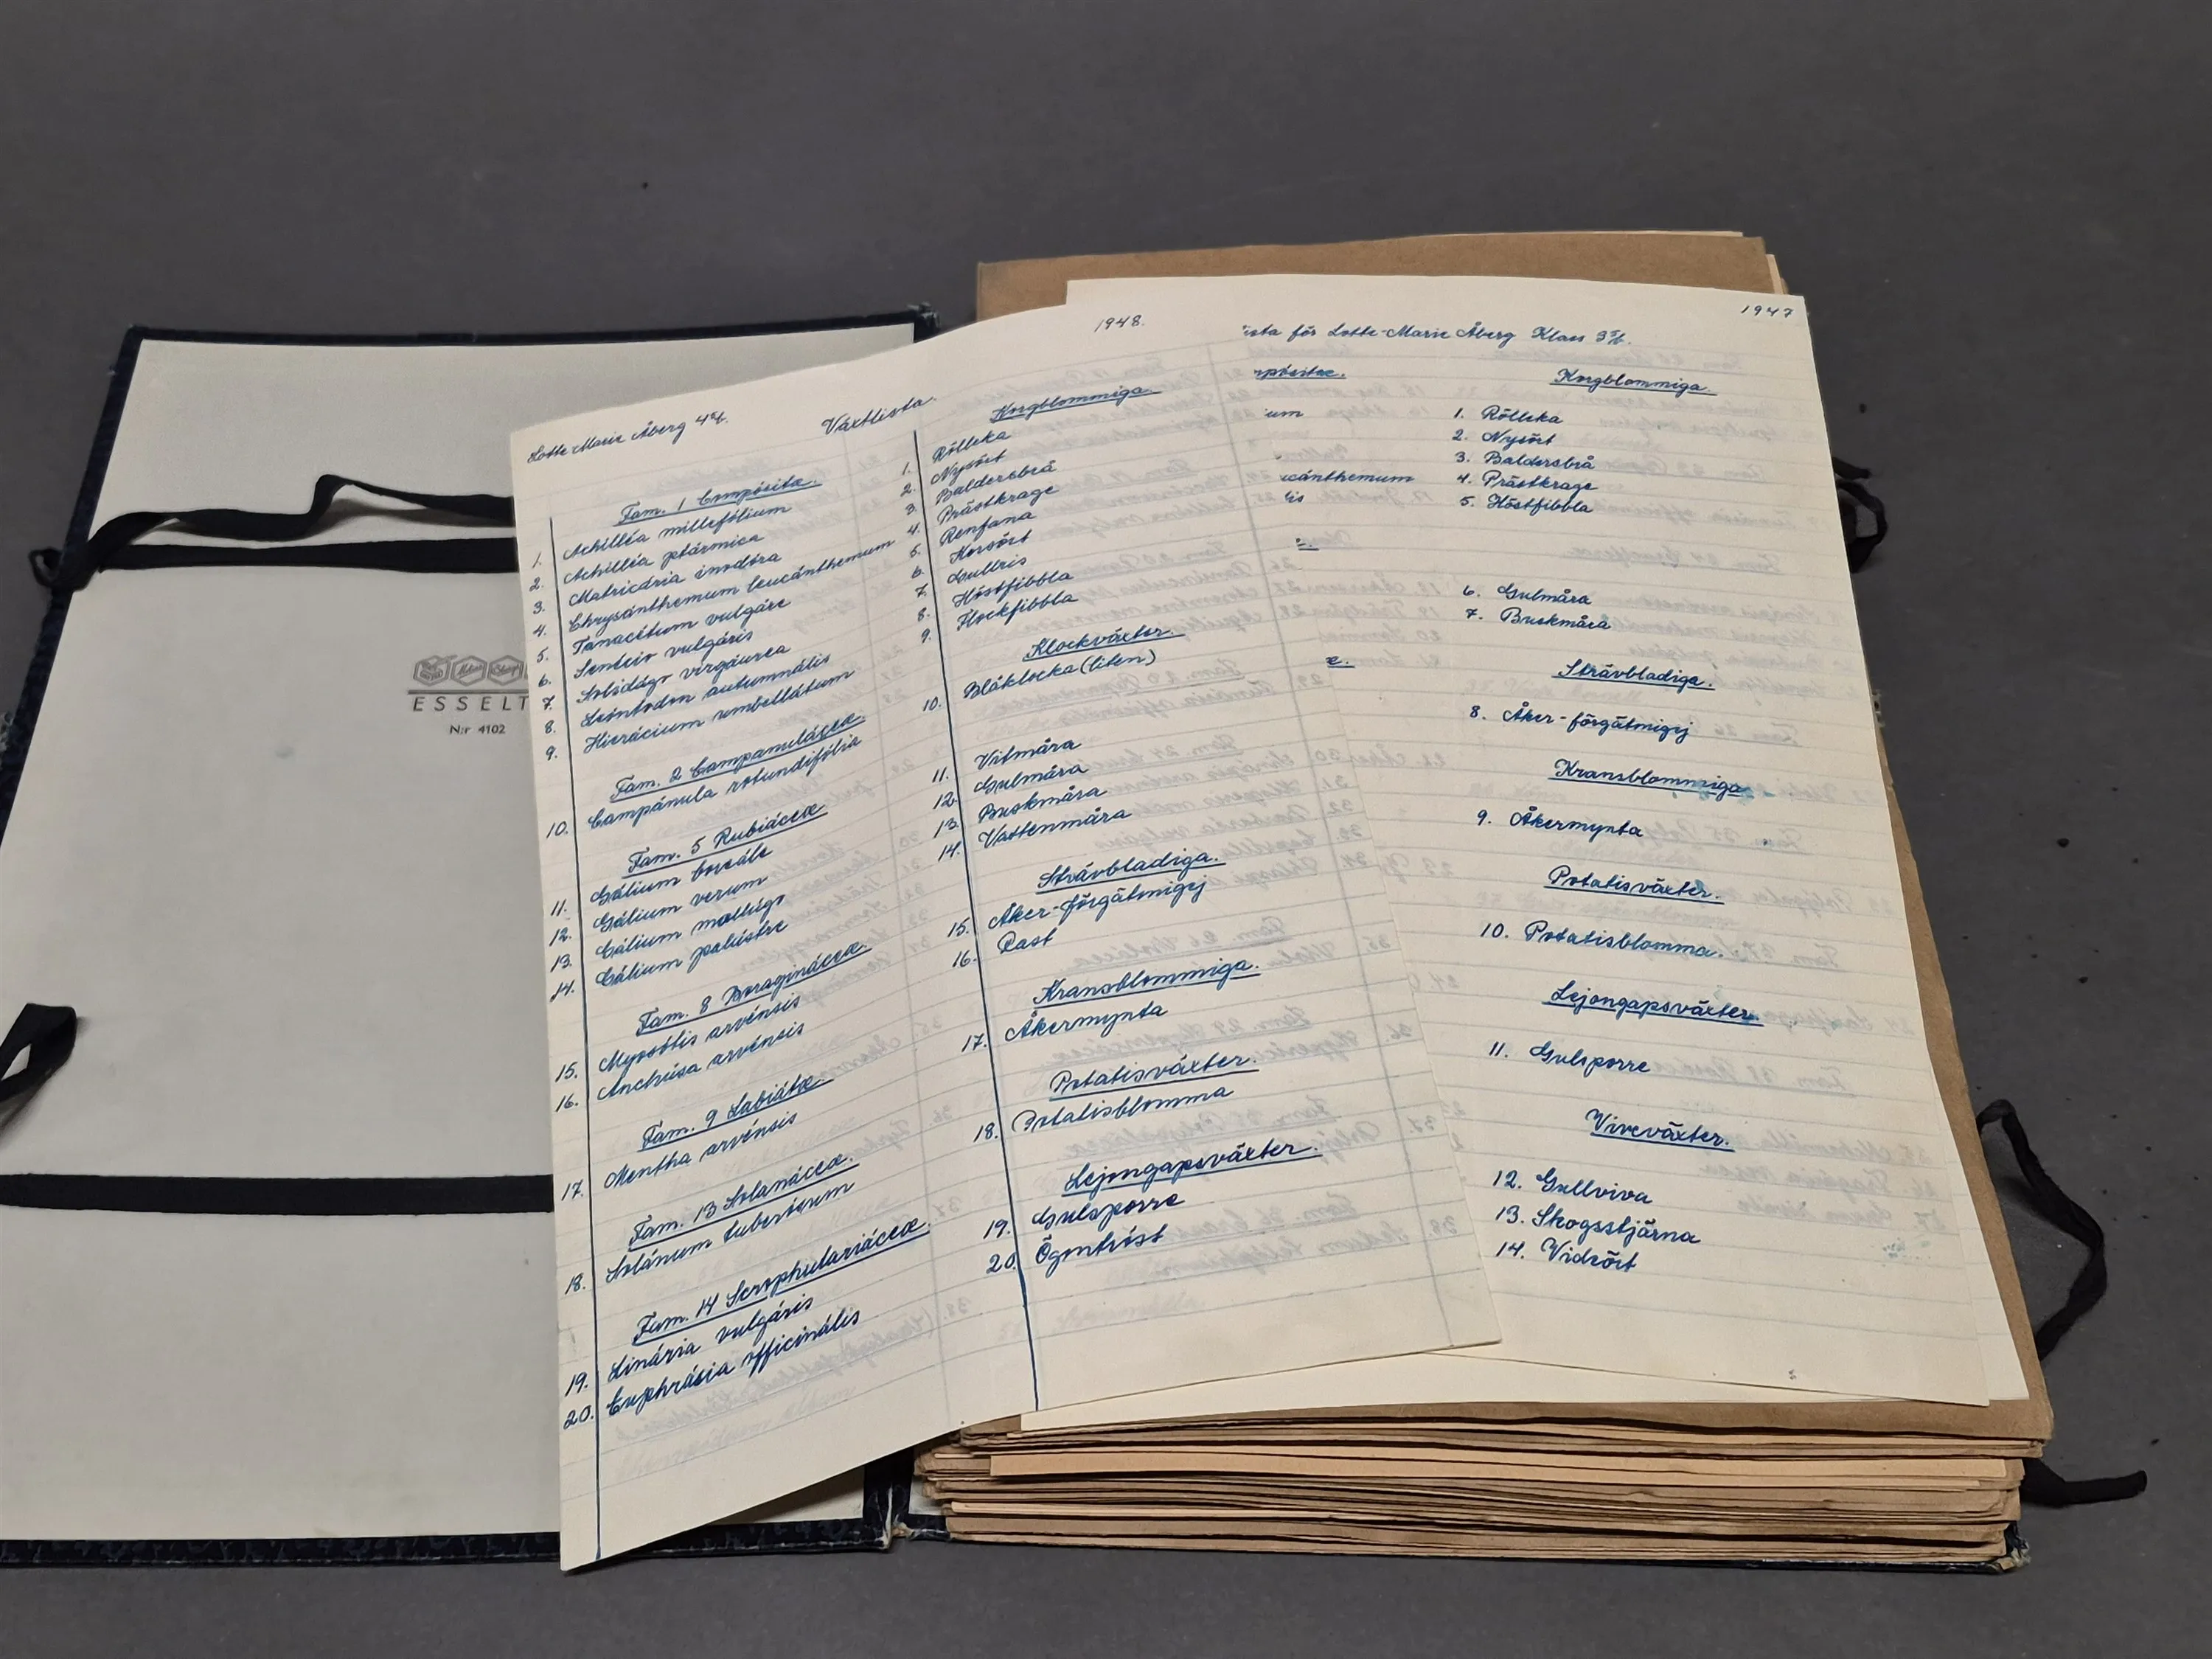 ESSELT
N:r 4102
1948.
Lotte-Marie Åberg 4
Växtlista.
Fam. 1 Compósitæ.
1. Achilléa millefólium
2. Achilléa ptármica
3. Matricária inodóra
4. Chrysánthemum leucánthemum
5. Tanacétum vulgáre
6. Senécio vulgáris
7. Solidágo virgáurea
8. Leóntodon autumnális
9. Hierácium umbellátum
Fam. 2 Campanuláceæ.
10. Campánula rotundifólia
Fam. 5 Rubiáceæ
11. Gálium boreále
12. Gálium verum
13. Gálium mollúgo
14. Gálium palústre
Fam. 8 Boragináceæ.
15. Myosótis arvénsis
16. Anchúsa arvénsis
Fam. 9 Labiátæ.
17. Mentha arvénsis
Fam. 13 Solanáceæ.
18. Solánum tuberósum
Fam. 14 Scrophulariáceæ.
19. Linária vulgáris
20. Euphrásia officinális
Korgblommiga.
1. Rölleka
2. Nysört
3. Baldersbrå
4. Prästkrage
5. Renfana
6. Korsört
7. Gullris
8. Höstfibbla
9. Flockfibbla
Klockväxter.
10. Blåklocka (liten)
11. Vitmåra
12. Gulmåra
13. Buskmåra
14. Vattenmåra
Strävbladiga.
15. Åker-förgätmigej
16. Rast
Kransblommiga.
17. Åkermynta
Potatisväxter.
18. Potatisblomma
Lejongapsväxter.
19. Gulsporre
20. Ögontröst
1947
ista för Lotte-Marie Åberg Klass 3
mpósitæ.
ium
cánthemum
lis
Korgblommiga.
1. Rölleka
2. Nysört
3. Baldersbrå
4. Prästkrage
5. Höstfibbla
6. Gulmåra
7. Buskmåra
Strävbladiga.
8. Åker-förgätmigej
Kransblommiga.
9. Åkermynta
Potatisväxter.
10. Potatisblomma.
Lejongapsväxter.
11. Gulsporre
Viveväxter.
12. Gullviva
13. Skogsstjärna
14. Videört